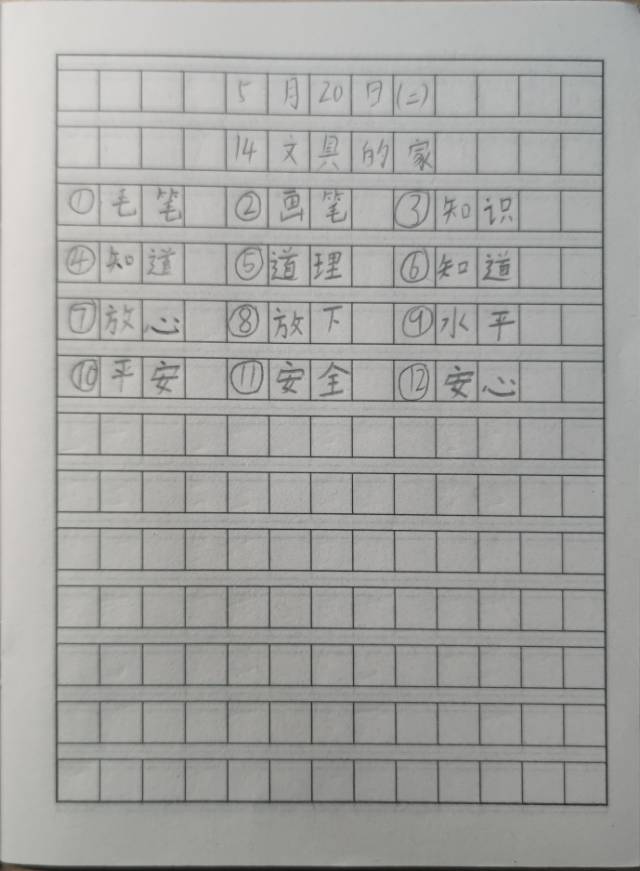 5月20日(二)
14 文具的家
①毛笔 ②画笔 ③知识
④知道 ⑤道理 ⑥知道
⑦放心 ⑧放下 ⑨水平
⑩平安 ⑪安全 ⑫安心